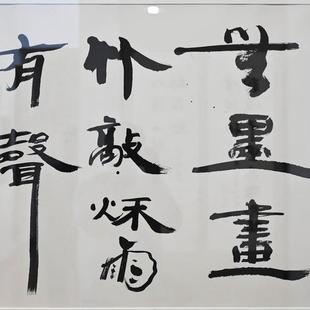 無墨畫
竹敲秌雨
有聲